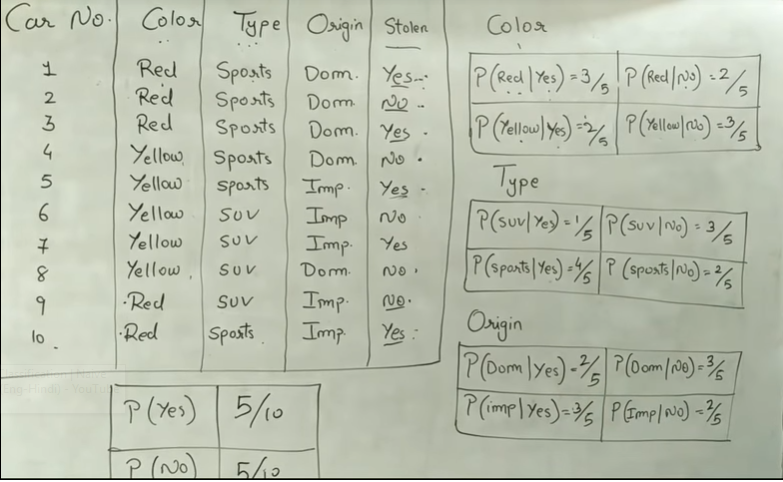 Car No. Color Type Origin Stolen
1 Red Sports Dom. Yes
2 Red Sports Dom No
3 Red Sports Dom. Yes
4 Yellow Sports Dom No
5 Yellow sports Imp. Yes
6 Yellow SUV Imp No
7 Yellow SUV Imp. Yes
8 Yellow SUV Dom. No
9 Red SUV Imp. No
10 Red Sports Imp. Yes
P(Yes) 5/10
P(No) 5/10
Color
P(Red|Yes) = 3/5 P(Red|No) = 2/5
P(Yellow|Yes) = 2/5 P(Yellow|No) = 3/5
Type
P(SUV|Yes) = 1/5 P(SUV|No) = 3/5
P(sports|Yes) = 4/5 P(sports|No) = 2/5
Origin
P(Dom|Yes) = 2/5 P(Dom|No) = 3/5
P(imp|Yes) = 3/5 P(Imp|No) = 2/5